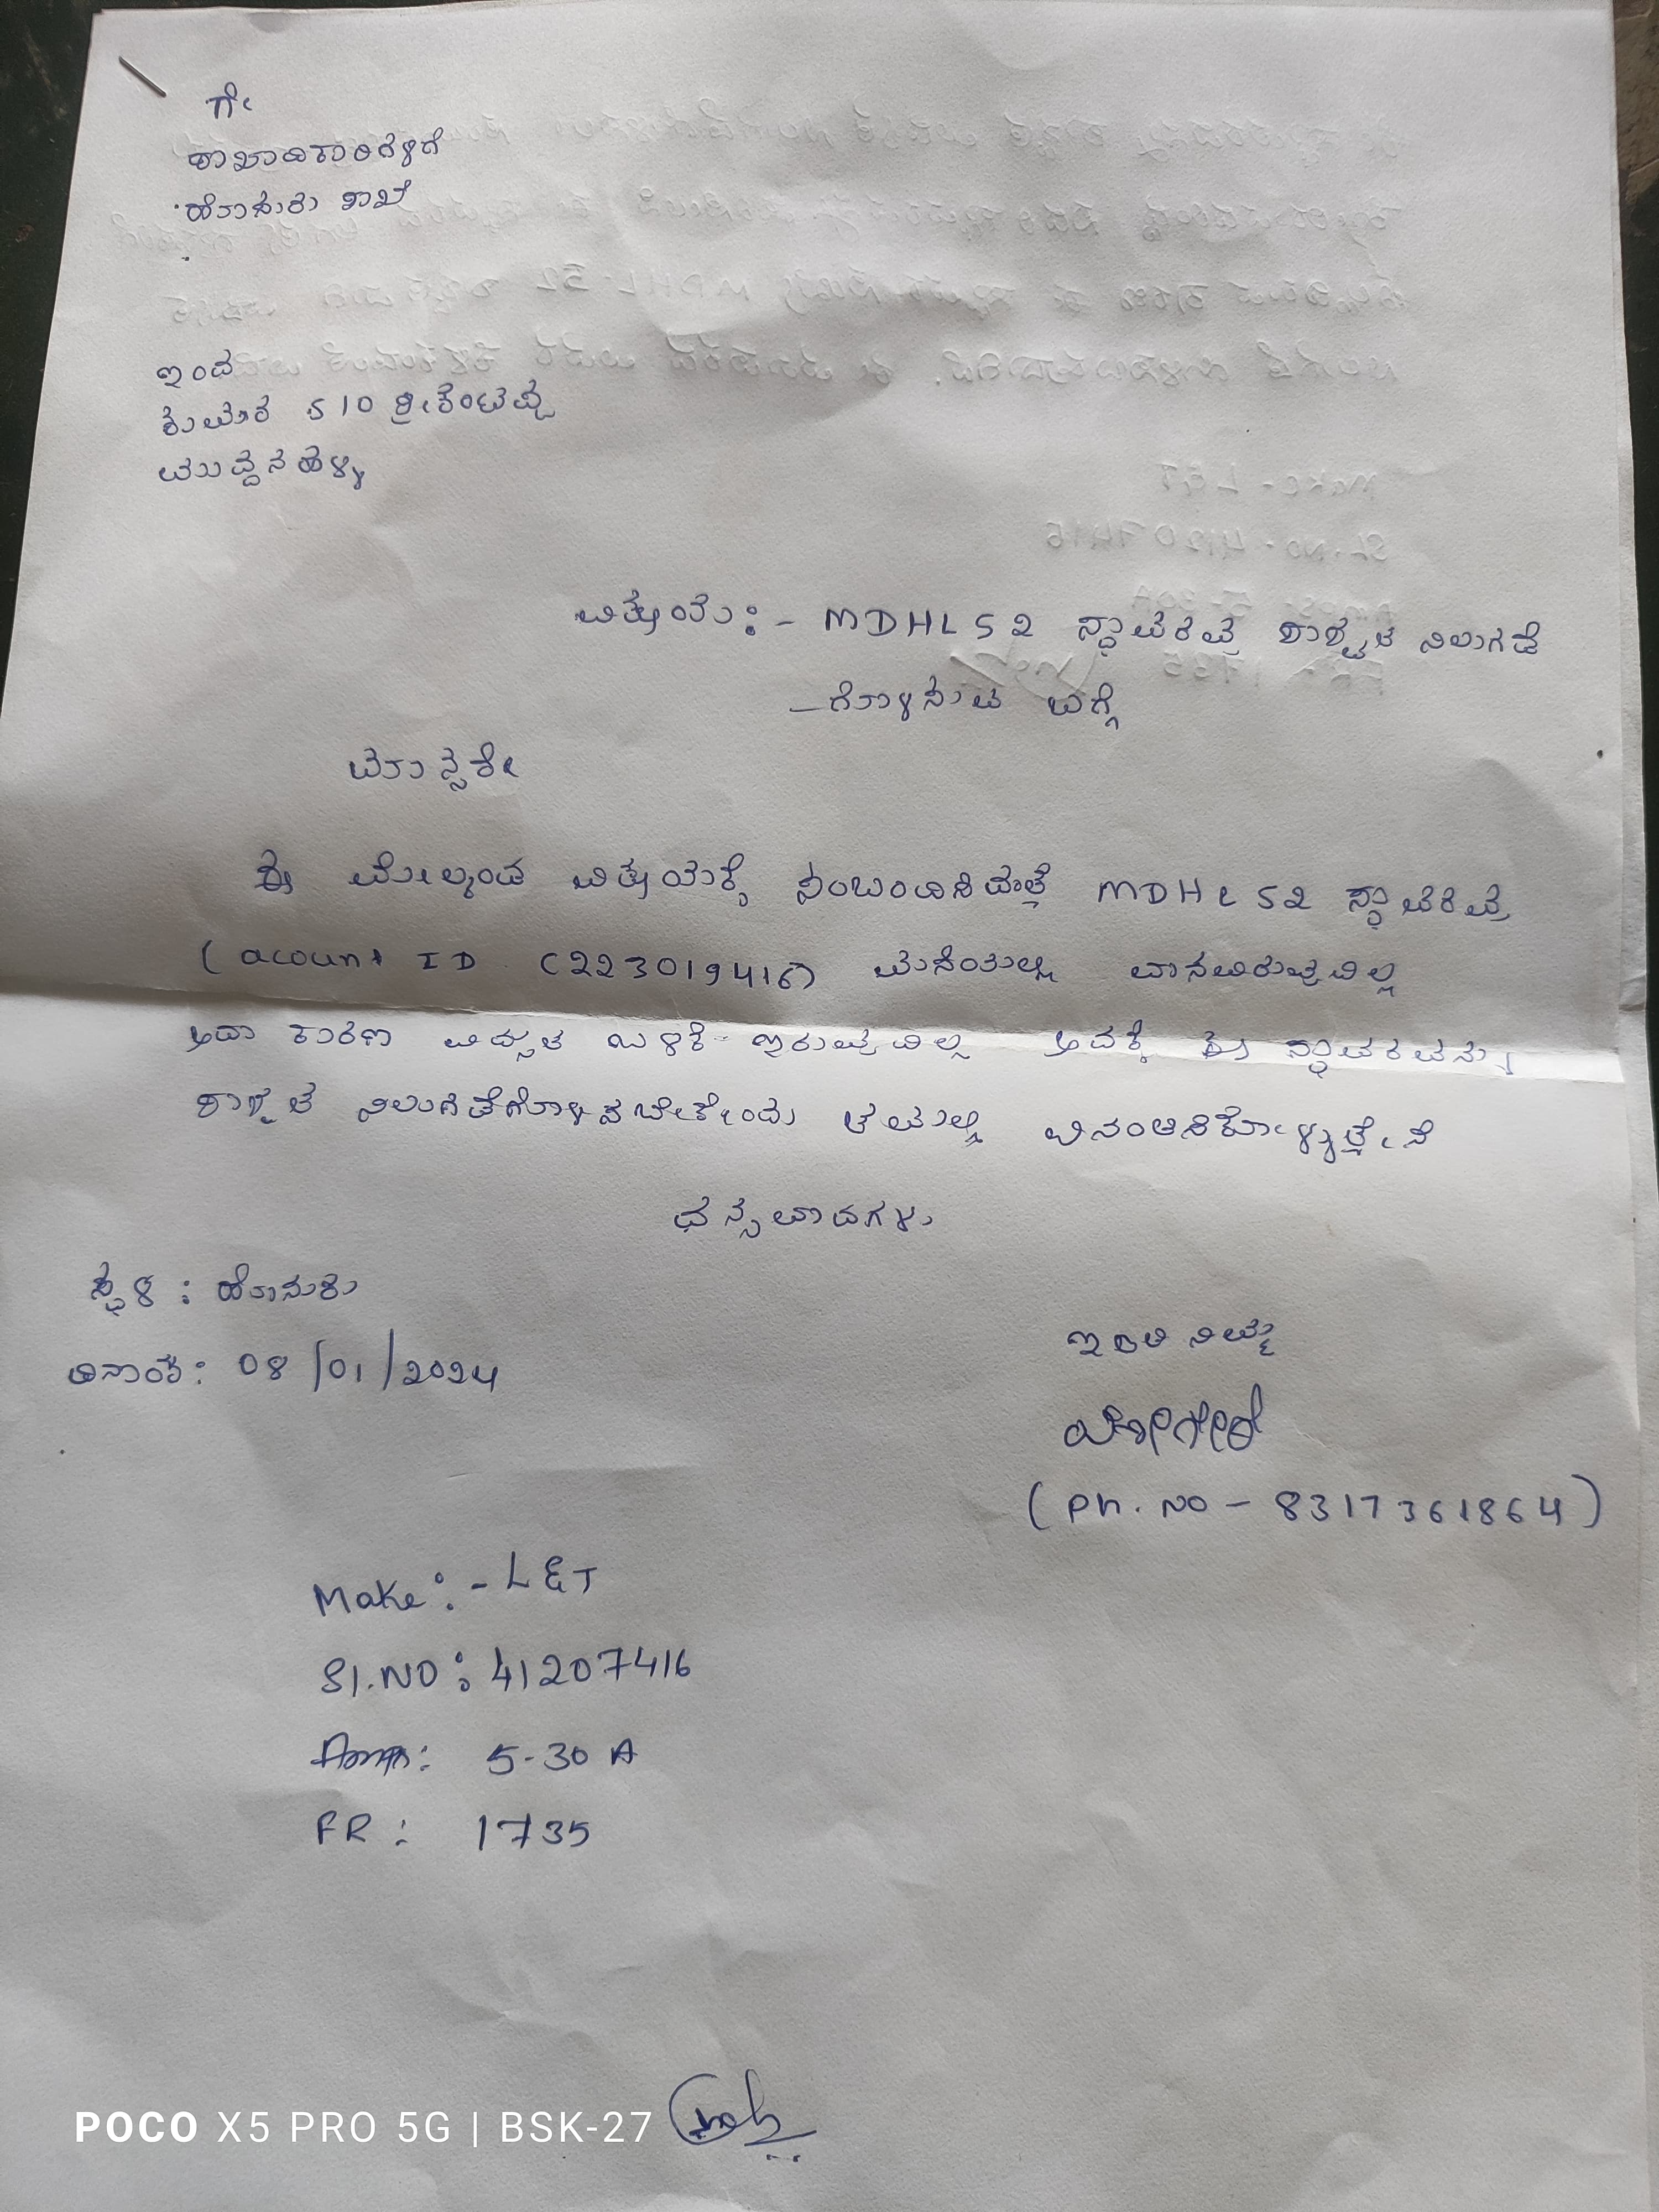 ಗೇ
ಶಾಖಾದಿಕಾರಿಗಳಿಗೆ
ಹೊಸುರು ಶಾಖೆ
ಇಂದ
ಕುಮಾರ S/O ಶ್ರೀಕಂಟಪ್ಪ
ಮುದ್ದನಹಳ್ಳಿ
ವಿಷಯ:- MDHL52 ಸ್ಥಾವರವು ಶಾಶ್ವತ ನಿಲುಗಡೆ
-ಗೊಳಿಸುವ ಬಗ್ಗೆ
ಮಾನ್ಯರೇ
ಈ ಮೇಲ್ಕಂಡ ವಿಷಯಕ್ಕೆ ಸಂಬಂಧಿಸಿದಂತೆ MDHL52 ಸ್ಥಾವರವು
(acount ID (223019416) ಮನೆಯಲ್ಲಿ ವಾಸವಿರುವುದಿಲ್ಲ
ಆದಾ ಕಾರಣ ವಿದ್ಯುತ ಬಳಕೆ ಇರುವುದಿಲ್ಲ ಆದಕ್ಕೆ ಈ ಸ್ಥಾವರವನ್ನು
ಶಾಶ್ವತ ನಿಲುಗಡೆಗೊಳಿಸಬೇಕೇಂದು ತಮ್ಮಲ್ಲಿ ವಿನಂತಿಸಿಕೋಳ್ಳುತ್ತೇನೆ
ಧನ್ಯವಾದಗಳು
ಸ್ಥಳ : ಹೊಸುರು
ದಿನಾಂಕ: 08/01/2024
ಇಂತಿ ನಿಮ್ಮ
(Ph. NO - 8317361864)
Make:- L&T
Sl.NO: 41207416
5-30 A
FR: 1735
POCO X5 PRO 5G | BSK-27